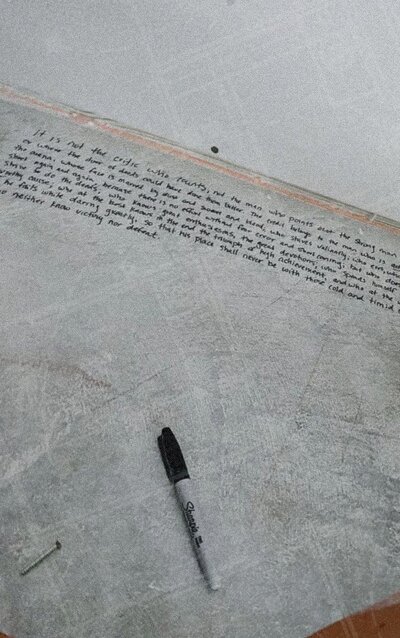 It is not the critic who counts, not the man who points out the strong man
or where the doer of deeds could have done them better. The credit belongs to the man who is
the arena, whose face is marred by dust and sweat and blood, who strives valiantly, who errs, who
short again and again, because there is no effort without error and shortcoming, but who
strive to do the deeds, who knows great enthusiasms, the great devotions, who spends himself
worthy cause; who at the best knows in the end the triumph of high achievement, and who at the
he fails while daring greatly, so that his place shall never be with those cold and timid
neither know victory nor defeat.
Sharpie